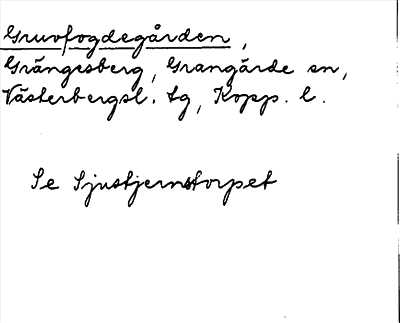 Gruvfogdegården,
Grängesberg, Grangärde sn,
Västerbergsl. tg, Kopp. l.
Se Sjustjernstorpet